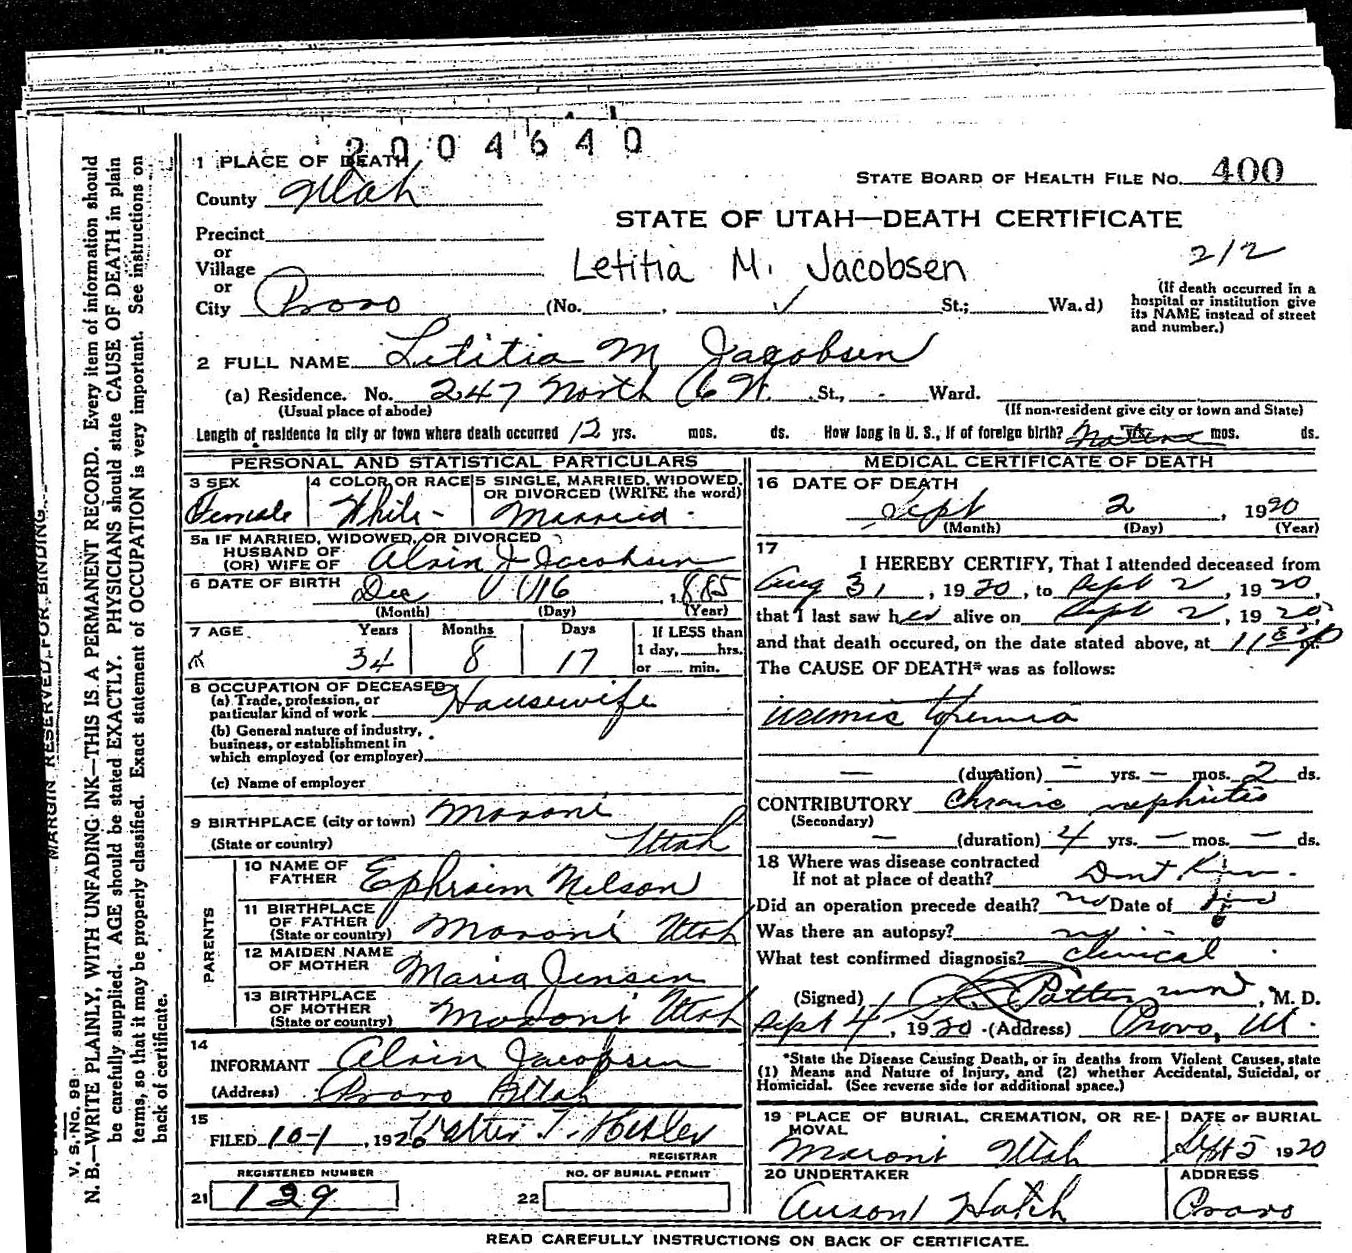 2004640
1 PLACE OF DEATH
County Utah
STATE BOARD OF HEALTH FILE No. 400
STATE OF UTAH—DEATH CERTIFICATE
Precinct
or
Village
or
City Provo
Letitia M. Jacobsen
212
(No. St.; Wa.d)
(If death occurred in a
hospital or institution give
its NAME instead of street
and number.)
2 FULL NAME Letitia M Jacobsen
(a) Residence. No. 247 North 6 W. St., - Ward.
(Usual place of abode)
(If non-resident give city or town and State)
Length of residence in city or town where death occurred 12 yrs. mos. ds. How long in U. S., if of foreign birth? Native mos. ds.
PERSONAL AND STATISTICAL PARTICULARS
3 SEX
Female
4 COLOR OR RACE
White
5 SINGLE, MARRIED, WIDOWED,
OR DIVORCED (WRITE the word)
Married
5a IF MARRIED, WIDOWED, OR DIVORCED
HUSBAND OF
(OR) WIFE OF Alvin J Jacobsen
6 DATE OF BIRTH Dec 16, 1885
(Month) (Day) (Year)
7 AGE Years Months Days If LESS than
1 day, hrs.
or min.
34 8 17
8 OCCUPATION OF DECEASED
(a) Trade, profession, or
particular kind of work Housewife
(b) General nature of industry,
business, or establishment in
which employed (or employer)
(c) Name of employer
9 BIRTHPLACE (city or town) Moroni
(State or country) Utah
PARENTS
10 NAME OF
FATHER Ephraim Nelson
11 BIRTHPLACE
OF FATHER
(State or country) Moroni Utah
12 MAIDEN NAME
OF MOTHER Maria Jensen
13 BIRTHPLACE
OF MOTHER
(State or country) Moroni Utah
14
INFORMANT Alvin Jacobsen
(Address) Provo Utah
15
FILED 10-1, 1920 Walter T. Hasler
REGISTRAR
REGISTERED NUMBER
21 129
NO. OF BURIAL PERMIT
22
MEDICAL CERTIFICATE OF DEATH
16 DATE OF DEATH
Sept 2, 1920
(Month) (Day) (Year)
17
I HEREBY CERTIFY, That I attended deceased from
Aug 31, 1920, to Sept 2, 1920,
that I last saw her alive on Sept 2, 1920,
and that death occured, on the date stated above, at 11
The CAUSE OF DEATH* was as follows:
uremic
— (duration) — yrs. — mos. 2 ds.
CONTRIBUTORY Chronic nephritis
(Secondary)
— (duration) 4 yrs. — mos. — ds.
18 Where was disease contracted
If not at place of death? Dont Know
Did an operation precede death? no Date of
Was there an autopsy? no
What test confirmed diagnosis? clinical
(Signed) Patten, M. D.
Sept 4, 1920 (Address) Provo, Ut.
*State the Disease Causing Death, or in deaths from Violent Causes, state
(1) Means and Nature of Injury, and (2) whether Accidental, Suicidal, or
Homicidal. (See reverse side for additional space.)
19 PLACE OF BURIAL, CREMATION, OR RE-
MOVAL
Moroni Utah
DATE OF BURIAL
Sept 5 1920
20 UNDERTAKER
Anson Hatch
ADDRESS
Provo
READ CAREFULLY INSTRUCTIONS ON BACK OF CERTIFICATE.
MARGIN RESERVED FOR BINDING
V. S. No. 98
N. B.—WRITE PLAINLY, WITH UNFADING INK—THIS IS A PERMANENT RECORD. Every item of information should
be carefully supplied. AGE should be stated EXACTLY. PHYSICIANS should state CAUSE OF DEATH in plain
terms, so that it may be properly classified. Exact statement of OCCUPATION is very important. See instructions on
back of certificate.